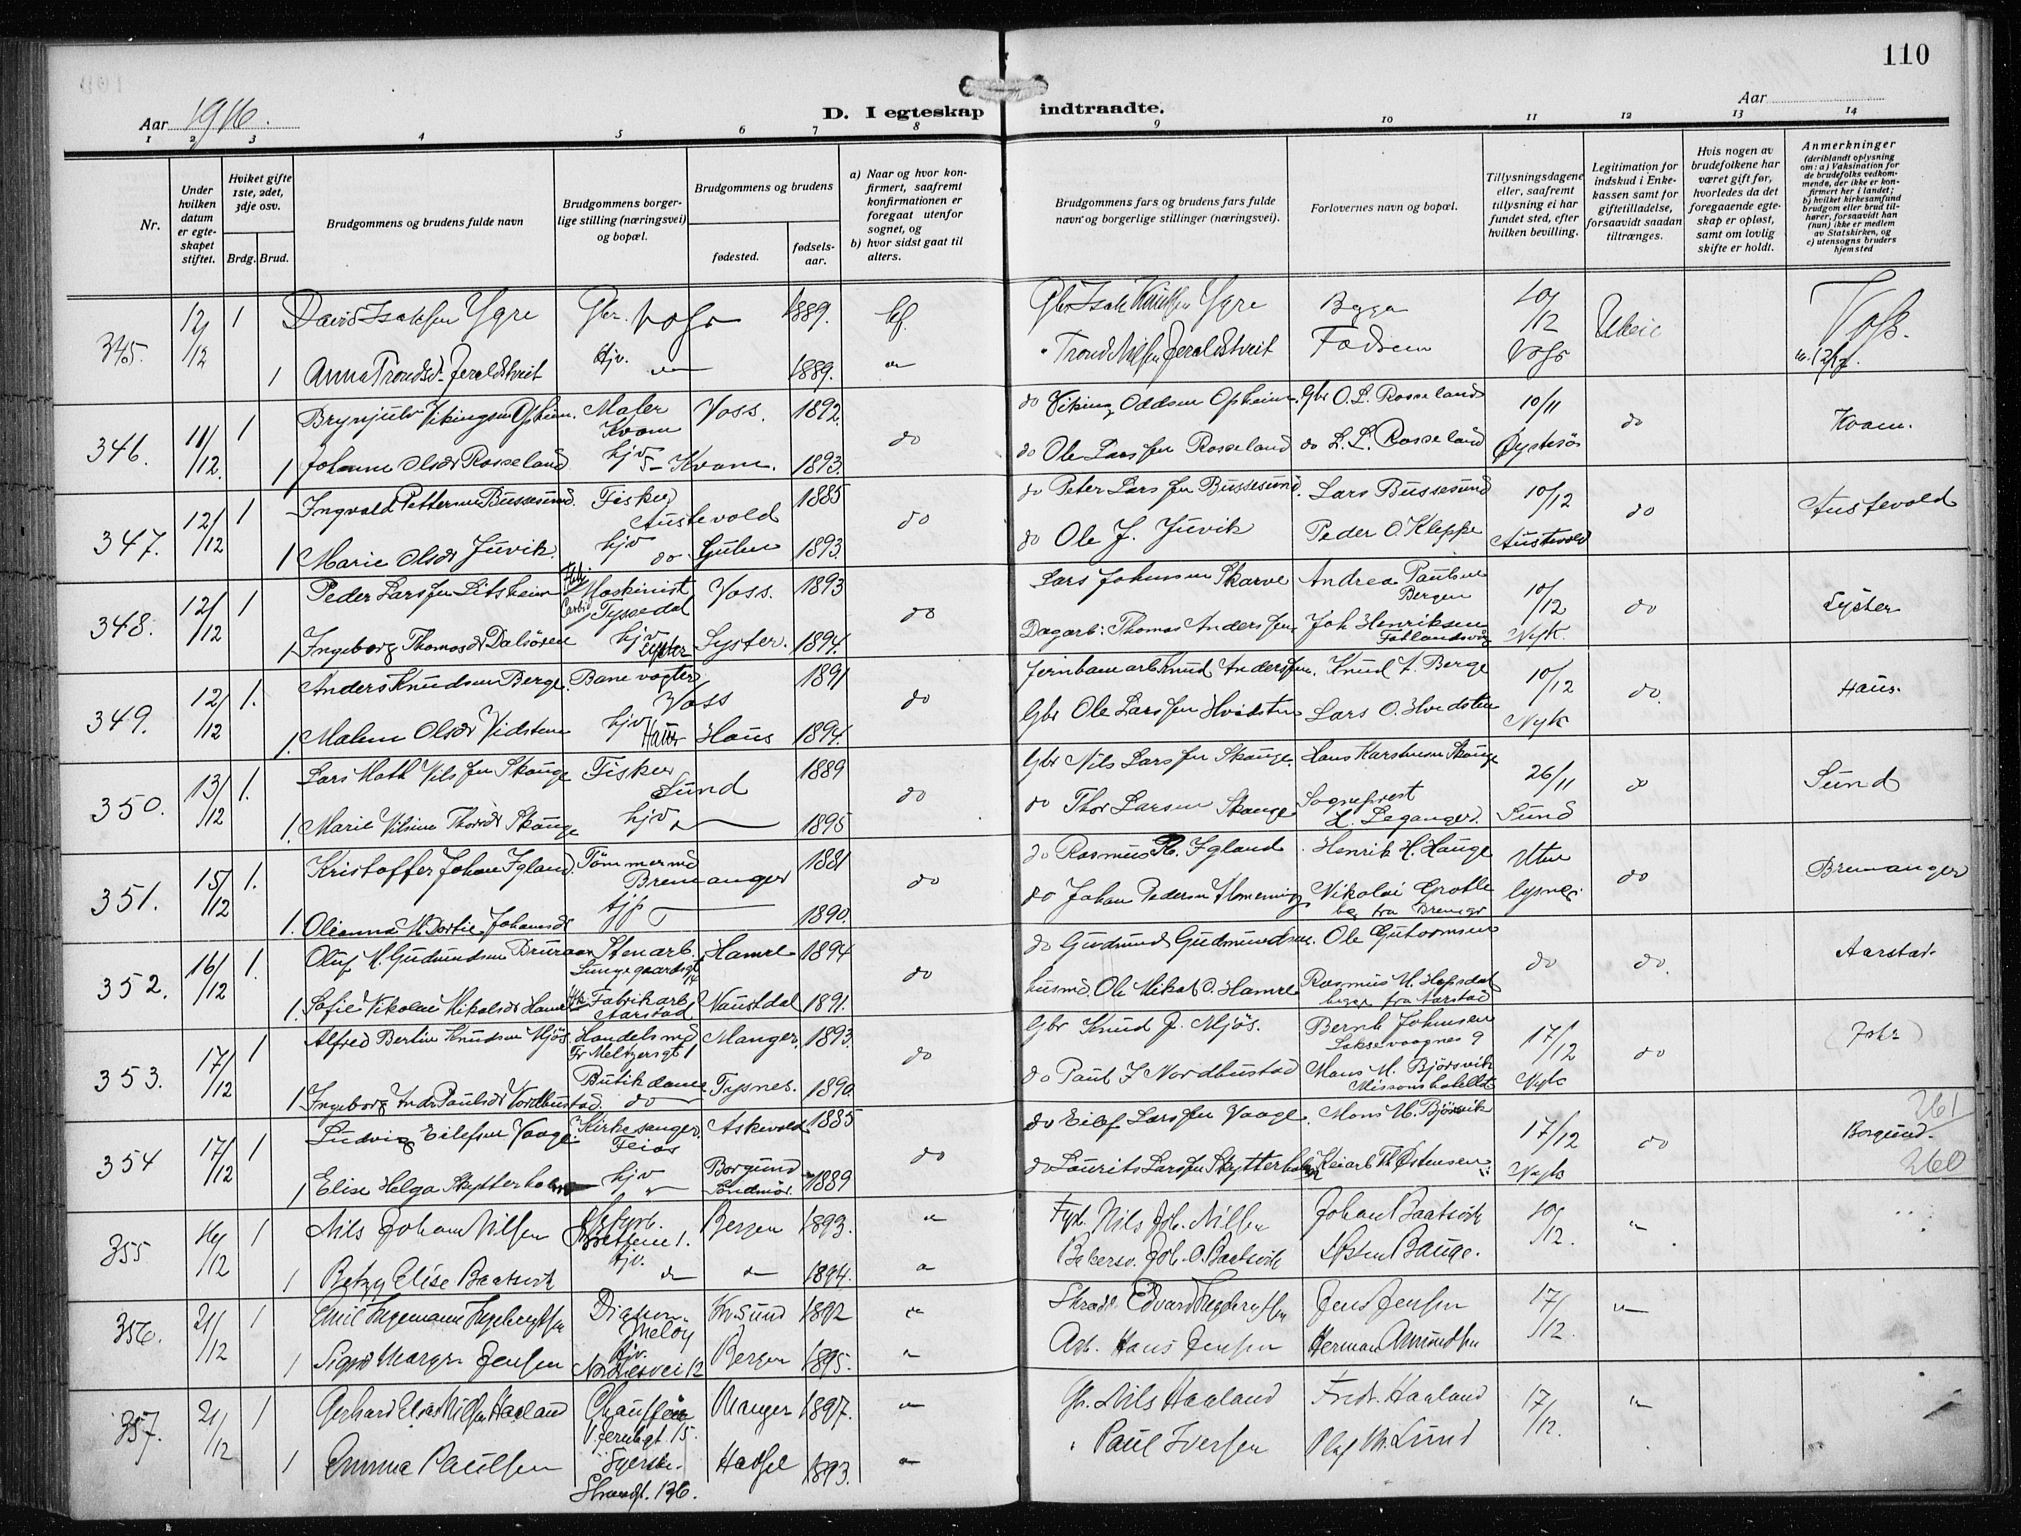 110
Aar 1916.
D. I egteskap indtraadte.
Aar
1 2 3 4 5 6 7 8 9 10 11 12 13 14
Nr.
Under hvilken datum er egteskapet stiftet.
Hviket gifte 1ste, 2det, 3dje osv.
Brdg. Brud.
Brudgommens og brudens fulde navn
Brudgommens borgerlige stilling (næringsvei) og bopæl.
Brudgommens og brudens
fødested.
fødselsaar.
a) Naar og hvor konfirmert, saafremt konfirmationen er foregaat utenfor sognet, og
b) hvor sidst gaat til alters.
Brudgommens fars og brudens fars fulde navn og borgerlige stillinger (næringsvei).
Forlovernes navn og bopæl.
Tillysningsdagene eller, saafremt tillysning ei har fundet sted, efter hvilken bevilling.
Legitimation for indskud i Enkekassen samt for giftetilladelse, forsaavidt saadan tiltrænges.
Hvis nogen av brudefolkene har været gift før, hvorledes da det foregaaende egteskap er opløst, samt om lovlig skifte er holdt.
Anmerkninger
(deriblandt oplysning om: a) Vaksination for de brudefolks vedkommende, der ikke er konfirmert her i landet; b) hvilket kirkesamfund brudgom eller brud tilhører, forsaavidt han (hun) ikke er medlem av Statskirken, og c) utensogns bruders hjemsted
345. 12/12 1 David Isaksen Ygre Gbr. Voss 1889. Ygre 10/12 Voss.
1 Anna Trondsd. Hjv. 1889. Trond Nilsen Voss
346. 11/12. 1 Brynjulv Vikingsen Opheim. Maler Kvam Voss. 1892. do Viking Oddsen Opheim. Gbr O. L. Rosseland 10/11 do Kvam.
1 Johanne Olsdr Rosseland hjv Kvam. 1893. do do Ole Larssen Rosseland do L. L. Rosseland Øystesø
347. 12/12 1 Ingvald Pettersen Bussesund. Fisker Austevold 1885 do Peter Larssen Bussesund. Lars Bussesund 10/12 do Austevold
1 Marie Olsdr Juvik. hjv do Gulen 1893. do do Ole J. Juvik Peder O. Kleppe Austevold
348. 12/12 1 Peder Larssen Maskinist Tyssedal Voss. 1893 do Lars Johnsen Skarve Andrea Paulsen Bergen 10/12 do Lyster
1 Ingeborg Thomasdr Dalsøren hjv Lyster Lyster. 1894. Dagarb: Thomas Anderssen Joh Henriksen Nyk.
349. 12/12 1. Anders Knudsen Berge. Banevogter Voss 1891 do Jernbanearb Knud Anderssen. Knud A. Berge 10/12 do. Haus.
1. Malene Olsdr Vidsten hjv Haus Haus 1894. Gbr Ole Larssen Hvidsten Lars O. Hvidsten Nyk
350. 13/12 1. Lars Math Nilssen Skauge Fisker Sund 1889 do Gbr Nils Larssen Skauge. Hans Karstensen Skauge 26/11 do Sund
1. Marie Nilsine Thorsdr Skauge hjv 1895 do Thor Larsen Skauge Sogneprest H. Leganger. Sund
351. 15/12 1. Kristoffer Johan Igland. Tømmermd Bremanger 1881 do do Rasmus R. Igland Henrik H. Hauge Uten lysnei do Bremanger
1. Oleanna M Dortie Johansdr tjp 1890. do Johan Pedersen Nikolai Grotle beg fra Bremgr
352. 16/12 1. Oluf M. Gudmundsen Bruraas Stenarb. Lungegaardsgt Hamre 1894 do do Gudmund Gudmundsen. Ole Guttormsen do do. Aarstad.
1. Sofie Nikolae Nikolsdr Hamre Fabrikarb. Aarstad Naustdal 1891. husmd. Ole Nikol O. Hamre Rasmus M. Hopsdal begge fra Aarstad
353. 17/12 1 Alfred Bertin Knudsen Mjøs. Handelsmd Fr Meltzersgt 1 Manger. 1893. do Gbr Knud J. Mjøs. Bernh Johnsen Laksevaagnes 9 17/12 do (Joh:)
1 Ingeborg Paulsdr Nordhustad. Butikdame do Tysnes. 1890. do Paul I Nordhustad Mons M. Bjørsvik Missionshotellet Nyk
354 17/12 1 Ludvig Eilefsen Vaage. Kirkesanger. Feios Askevold 1885 do do Eilef Larssen Vaage. Mons M. Bjørsvik 17/12 do Borgund. 261
1 Elise Helga Skytterholm hjv Borgund Søndmør. 1889 do Laurits Larssen Skytterholm Th Østensen Nyk 260
355 16/12 1 Nils Johan Nilsen 1. Bergen 1893. Fyrb. Nils Joh. Nilsen Johan Baatsvik 10/12.
1 Betzy Elise Baatsvik hjv. do 1894. Bakersv. Joh. O. Baatsvik Østen Bauge.
356. 21/12 1 Emil Ingemann Ingebrigtsen Diakon Meløy Kr.sund 1892 Skrædr. Edvard Ingebrigtsen Jens Jensen 17/12.
1 Sigrid Margr. Jensen hjv. Nordnesvei 12 Bergen 1895. Arb. Hans Jensen Herman Amundsen
357. 21/12 1 Gerhard Elias Nilsen Haaland Chauffør 15. Manger 1897. Gbr. Nils Haaland Fredr. Haaland 17/12.
1 Emma Paulsen Syerske. Strandgt. 136. Hadsel 1893. Paul Iversen Olaf M. Lund